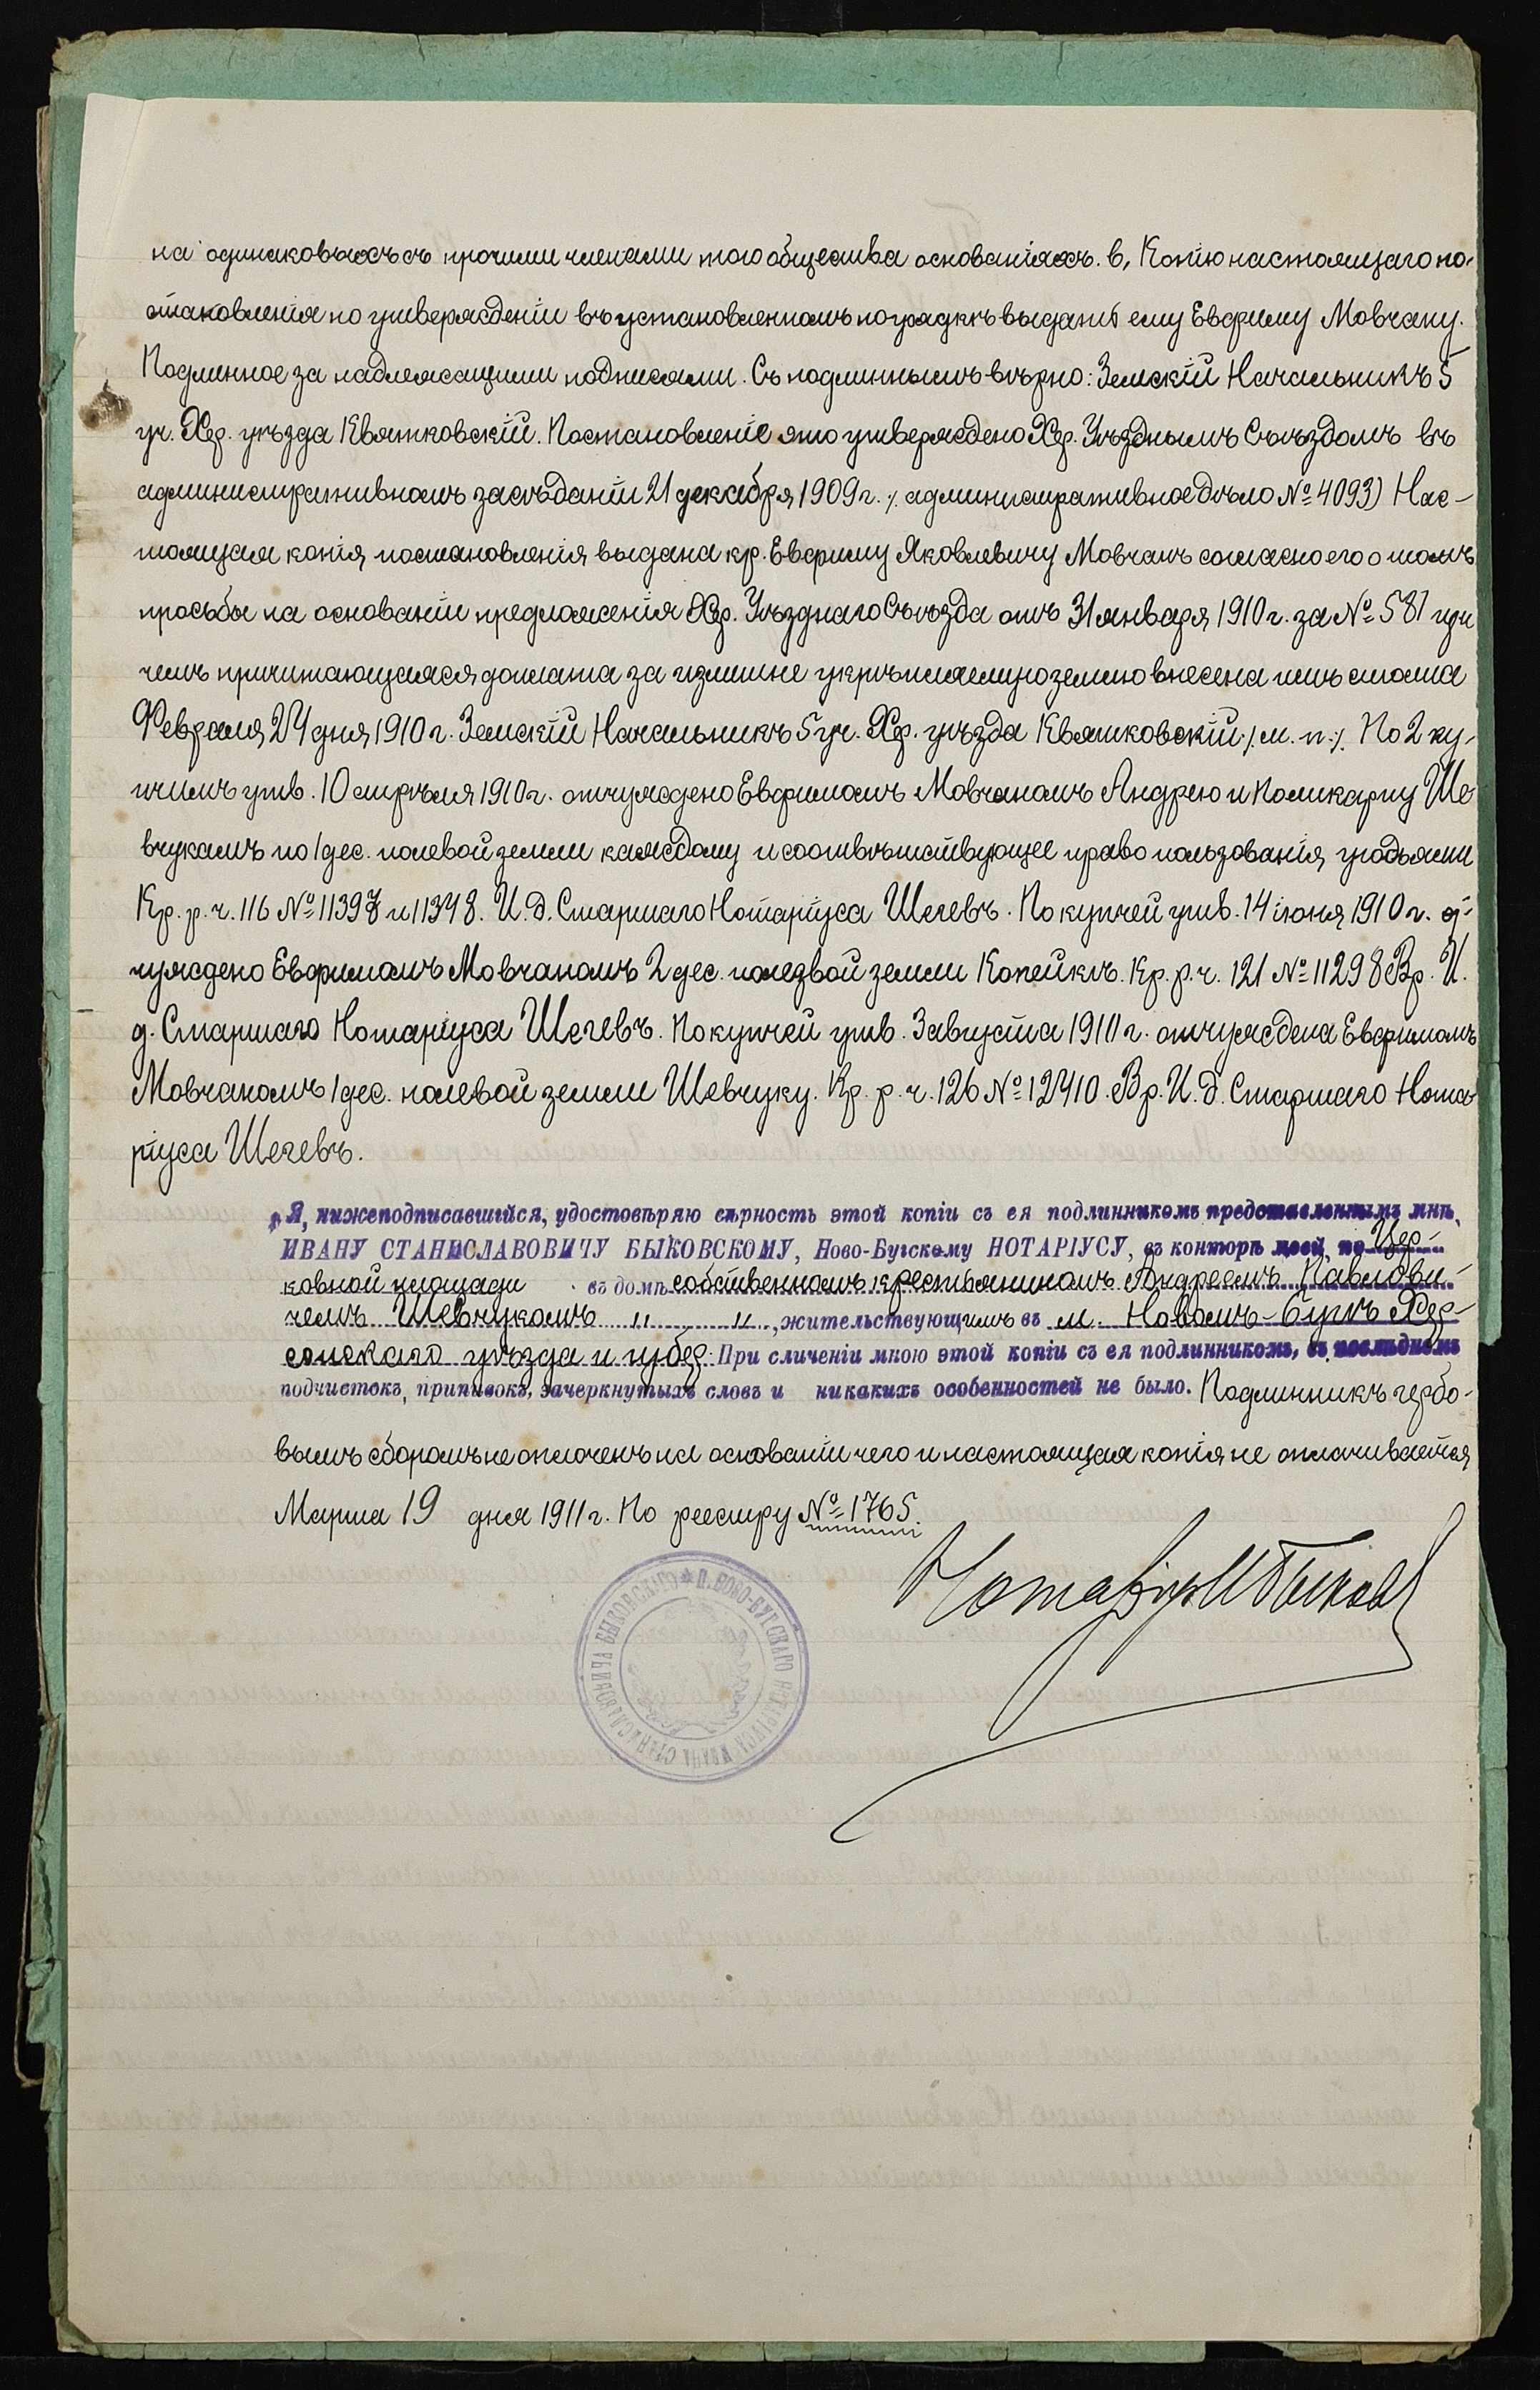 на одинаковыхъ съ прочими членами того общества основанiяхъ. в, Копiю настоящаго по-
становленiя по утвержденiи въ установленномъ порядкѣ выдать ему Евфиму Мовчану.
Подлинное за надлежащими подписями. Съ подлиннымъ вѣрно: Земскiй Начальникъ 5
уч. Хер. уѣзда Квятковскiй. Постановленiе это утверждено Хер. Уѣзднымъ Съѣздомъ въ
административномъ засѣданiи 21 декабря 1909 г. /. административное дѣло № 4093) Нас-
тоящая копiя постановленiя выдана кр. Евфиму Яковлевичу Мовчанъ согласно его о томъ
просьбы на основанiи предложенiя Хер. Уѣзднаго Съѣзда отъ 31 января 1910 г. за № 581 при
чемъ причитающаяся доплата за излишне укрѣпляемую землю внесена имъ сполна
Февраля 24 дня 1910 г. Земскiй Начальникъ 5 уч. Хер. уѣзда Квятковскiй /. м. п. /. По 2 ку-
пчимъ утв. 10 апрѣля 1910 г. отчуждено Евфимомъ Мовчаномъ Андрею и Поликарпу Ше
вчукамъ по 1 дес. полевой земли каждому и соотвѣтствующее право пользованiя угодьями
Кр. р. ч. 116 № 11397 и 11348. И. д. Старшаго Нотарiуса Шегевъ. По купчей утв. 14 iюня 1910 г. от-
чуждено Евфимомъ Мовчаномъ 2 дес. полевой земли Копейкѣ. Кр. р. ч. 121 № 11298 Вр. И.
д. Старшаго Нотарiуса Шегевъ. По купчей утв. 3 августа 1910 г. отчуждена Евфимомъ
Мовчаномъ 1 дес. полевой земли Шевчуку. Кр. р. ч. 126 № 12410. Вр. И. д. Старшаго Нота
рiуса Шегевъ.
Я, нижеподписавшiйся, удостовѣряю вѣрность этой копiи съ ея подлинникомъ представленнымъ мнѣ,
ИВАНУ СТАНИСЛАВОВИЧУ БЫКОВСКОМУ, Ново-Бугскому НОТАРIУСУ, въ конторѣ моей, по Цер-
ковной площади въ домѣ собственномъ крестьяниномъ Андреемъ Павлови-
чемъ Шевчукомъ " " , жительствующимъ въ м. Новомъ-Бугѣ Хер-
сонскаго уѣзда и губер. При сличенiи мною этой копiи съ ея подлинникомъ, въ послѣднемъ
подчистокъ, приписокъ, зачеркнутыхъ словъ и никакихъ особенностей не было. Подлинникъ гербо-
вымъ сборомъ не оплоченъ на основанiи чего и настоящая копiя не оплачивается
Марта 19 дня 1911 г. По реестру № 1765.
Нотарiусъ И Быковс
* П. НОВО-БУГСКАГО НОТАРIУСА ИВАНА СТАНИСЛАВОВИЧА БЫКОВСКАГО